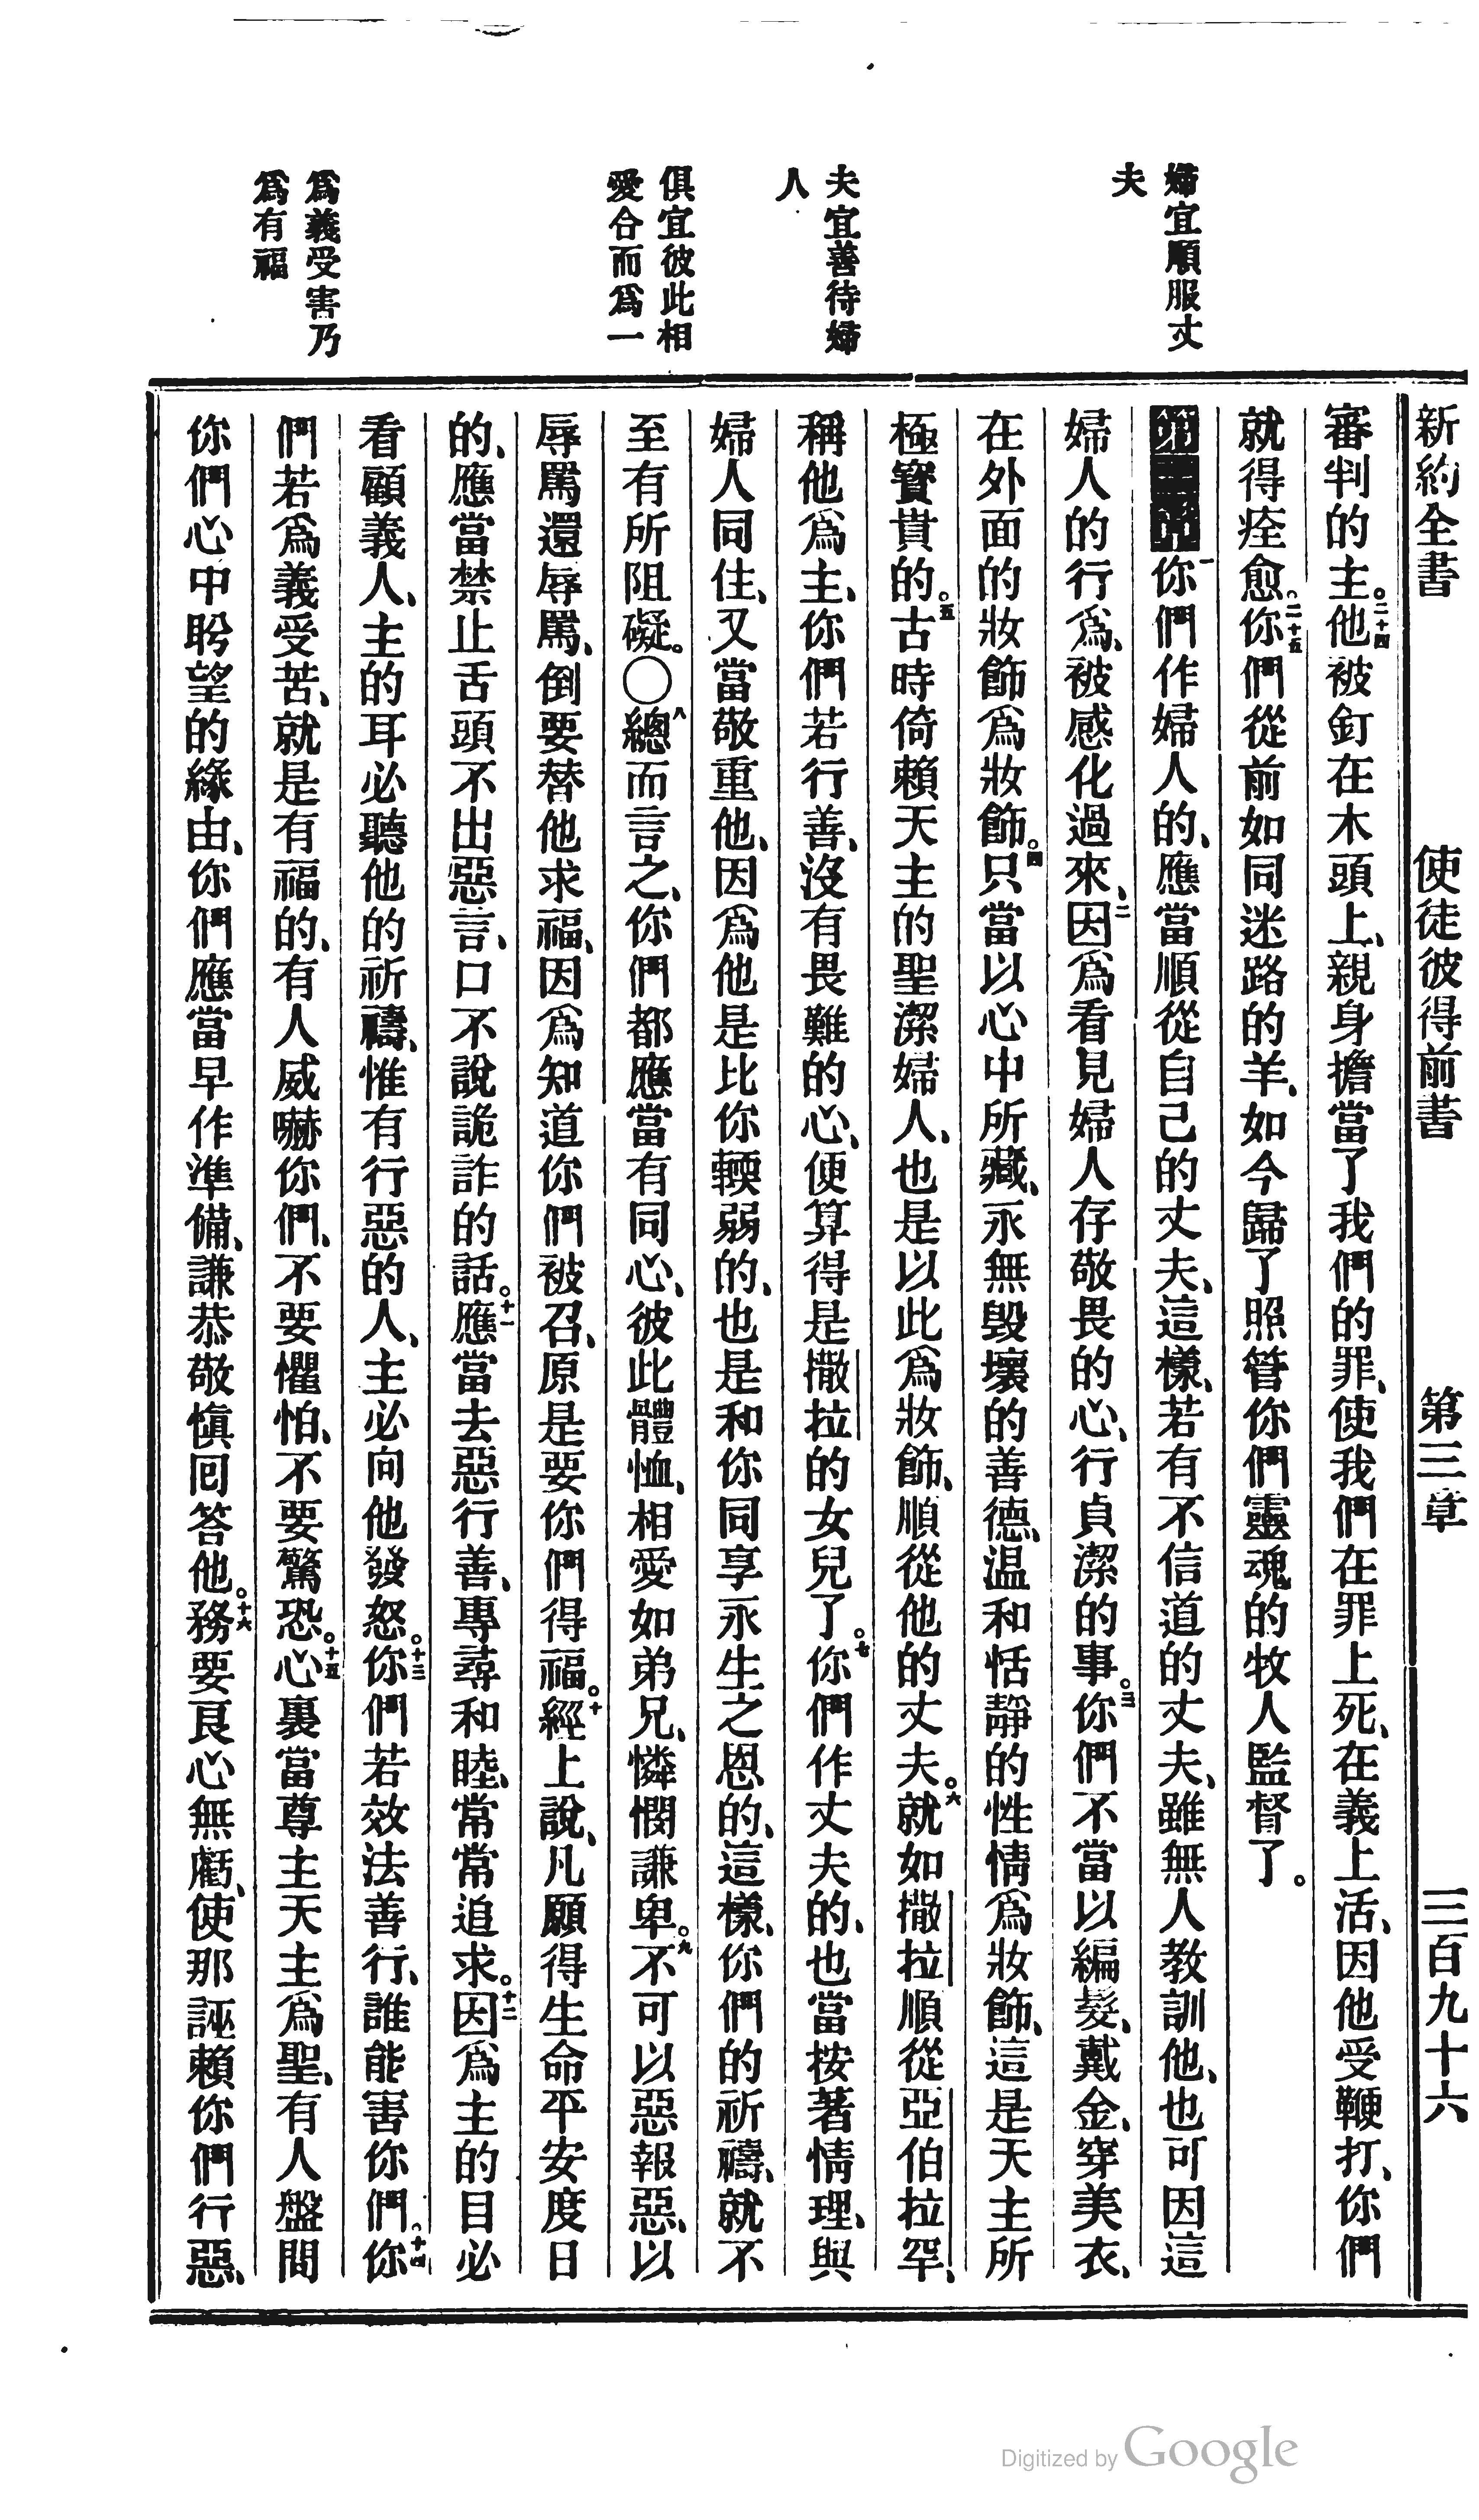 新約全書　使徒彼得前書　第三章　三百九十六
婦宜順服丈
夫
夫宜善待婦
人
俱宜彼此相
愛合而爲一
爲義受害乃
爲有福
審判的主。二十四他被釘在木頭上、親身擔當了我們的罪、使我們在罪上死、在義上活、因他受鞭打、你們
就得痊愈。二十五你們從前如同迷路的羊、如今歸了照管你們靈魂的牧人監督了。
第三章一你們作婦人的、應當順從自己的丈夫、這樣、若有不信道的丈夫、雖無人教訓他、也可因這
婦人的行爲、被感化過來、二因爲看見婦人存敬畏的心、行貞潔的事。三你們不當以編髮、戴金、穿美衣、
在外面的妝飾爲妝飾。四只當以心中所藏、永無毀壞的善德、温和恬靜的性情爲妝飾、這是天主所
極寶貴的。五古時倚賴天主的聖潔婦人、也是以此爲妝飾、順從他的丈夫。六就如撒拉順從亞伯拉罕、
稱他爲主、你們若行善、沒有畏難的心、便算得是撒拉的女兒了。七你們作丈夫的、也當按著情理、與
婦人同住、又當敬重他、因爲他是比你輭弱的、也是和你同享永生之恩的、這樣、你們的祈禱、就不
至有所阻礙。〇八總而言之、你們都應當有同心、彼此體恤、相愛如弟兄、憐憫謙卑。九不可以惡報惡、以
辱罵還辱罵、倒要替他求福、因爲知道你們被召、原是要你們得福。十經上說、凡願得生命平安度日
的、應當禁止舌頭不出惡言、口不說詭詐的話。十一應當去惡行善、專尋和睦、常常追求。十二因爲主的目必
看顧義人、主的耳必聽他的祈禱、惟有行惡的人、主必向他發怒。十三你們若效法善行、誰能害你們。十四你
們若爲義受苦、就是有福的、有人威嚇你們、不要懼怕、不要驚恐。十五心裏當尊主天主爲聖、有人盤問
你們心中盼望的緣由、你們應當早作準備、謙恭敬愼囘答他。十六務要良心無虧、使那誣賴你們行惡、
Digitized by Google